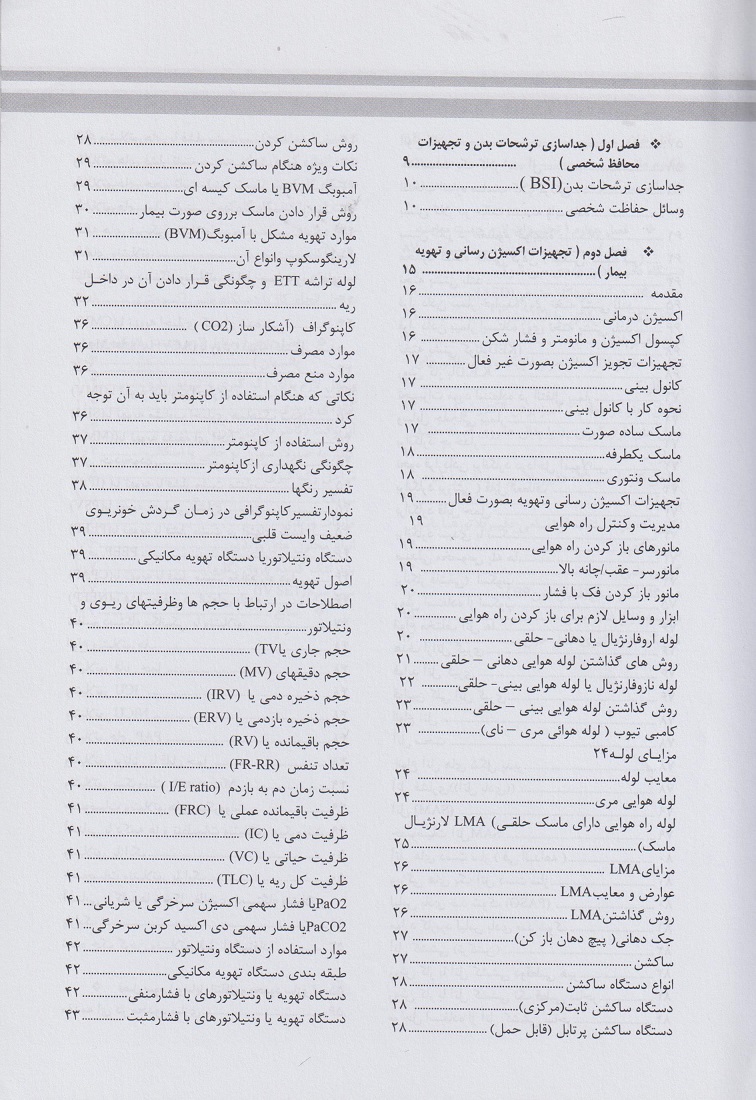 ❖ فصل اول ( جداسازی ترشحات بدن و تجهیزات
محافظ شخصی ) ..............................۹
جداسازی ترشحات بدن(BSI ) ........................۱۰
وسائل حفاظت شخصی ...............................۱۰
❖ فصل دوم ( تجهیزات اکسیژن رسانی و تهویه
بیمار )............................................ ۱۵
مقدمه ......................................................۱۶
اکسیژن درمانی .............................................۱۶
کپسول اکسیژن و مانومتر و فشار شکن .............. ۱۶
تجهیزات تجویز اکسیژن بصورت غیر فعال .......... ۱۷
کانول بینی ................................................. ۱۷
نحوه کار با کانول بینی................................... ۱۷
ماسک ساده صورت ..................................... ۱۷
ماسک یکطرفه..............................................۱۸
ماسک ونتوری ............................................ ۱۸
تجهیزات اکسیژن رسانی وتهویه بصورت فعال........۱۹
مدیریت وکنترل راه هوایی ۱۹
مانورهای باز کردن راه هوایی ...........................۱۹
مانورسر- عقب/چانه بالا.................................. ۱۹
مانور باز کردن فک با فشار ...............................۲۰
ابزار و وسایل لازم برای باز کردن راه هوایی ..........۲۰
لوله اروفارنژیال یا دهانی- حلقی....................... ۲۰
روش های گذاشتن لوله هوایی دهانی – حلقی.......۲۱
لوله نازوفارنژیال یا لوله هوایی بینی- حلقی........... ۲۲
روش گذاشتن لوله هوایی بینی – حلقی...............۲۳
کامبی تیوب ( لوله هوائی مری – نای)................ ۲۳
مزایـای لولـه۲۴
معایب لوله .................................................. ۲۴
لوله هوایی مری ............................................۲۴
لوله راه هوایی دارای ماسک حلقـی) LMA لارنژیـال
ماسک)......................................................۲۵
مزایایLMA ..............................................۲۶
عوارض و معایبLMA ..................................۲۶
روش گذاشتنLMA .....................................۲۶
جک دهانی( پیچ دهان باز کن)..........................۲۷
ساکشن .....................................................۲۷
انواع دستگاه ساکشن .....................................۲۸
دستگاه ساکشن ثابت(مرکزی)......................... ۲۸
دستگاه ساکشن پرتابل (قابل حمل) ....................۲۸
روش ساکشن کردن.......................................۲۸
نکات ویژه هنگام ساکشن کردن .......................۲۹
آمبوبگ BVM یا ماسک کیسه ای .....................۲۹
روش قرار دادن ماسک برروی صورت بیمار...........۳۰
موارد تهویه مشکل با آمبوبگ(BVM) ................۳۱
لارینگوسکوپ وانواع آن...................................۳۱
لوله تراشه ETT و چگونگی قـرار دادن آن در داخـل
ریه ...........................................................۳۲
کاپنوگراف (آشکار ساز (CO2 ) ......................۳۶
موارد مصرف ................................................ ۳۶
موارد منع مصرف...........................................۳۶
نکاتی که هنگام استفاده از کاپنومتر باید به آن توجه
کرد ..........................................................۳۶
روش استفاده از کاپنومتر.................................۳۷
چگونگی نگهداری ازکاپنومتر ............................۳۷
تفسیر رنگها ................................................۳۸
نمودارتفسیرکاپنوگرافی در زمـان گـردش خونریـوی
ضعیف وایست قلبی.......................................۳۹
دستگاه ونتیلاتوریا دستگاه تهویه مکانیکی............۳۹
اصول تهویه .................................................۳۹
اصطلاحات در ارتباط با حجم ها وظرفیتهای ریـوی و
ونتیلاتور.....................................................۴۰
حجم جاری یاTV) .......................................۴۰
حجم دقیقهای (MV) ....................................۴۰
حجم ذخیره دمی یا (IRV) ............................۴۰
حجم ذخیره بازدمی یا (ERV) ........................۴۰
حجم باقیمانده یا (RV) .................................۴۰
تعداد تنفس (FR-RR) .................................۴۰
نسبت زمان دم به بازدم (I/E ratio ) ................۴۰
ظرفیت باقیمانده عملی یا (FRC) ....................۴۱
ظرفیت دمی یا (IC) ......................................۴۱
ظرفیت حیاتی یا (VC) ...................................۴۱
ظرفیت کل ریه یا (TLC) ................................۴۱
PaO2یا فشار سهمی اکسیژن سرخرگی یا شریانی ..۴۱
PaCO2یا فشار سهمی دی اکسید کربن سرخرگی...۴۱
موارد استفاده از دستگاه ونتیلاتور ......................۴۲
طبقه بندی دستگاه تهویه مکانیکی......................۴۲
دستگاه تهویه یا ونتیلاتورهای با فشارمنفی............۴۲
دستگاه تهویه یا ونتیلاتورهای با فشارمثبت...........۴۳